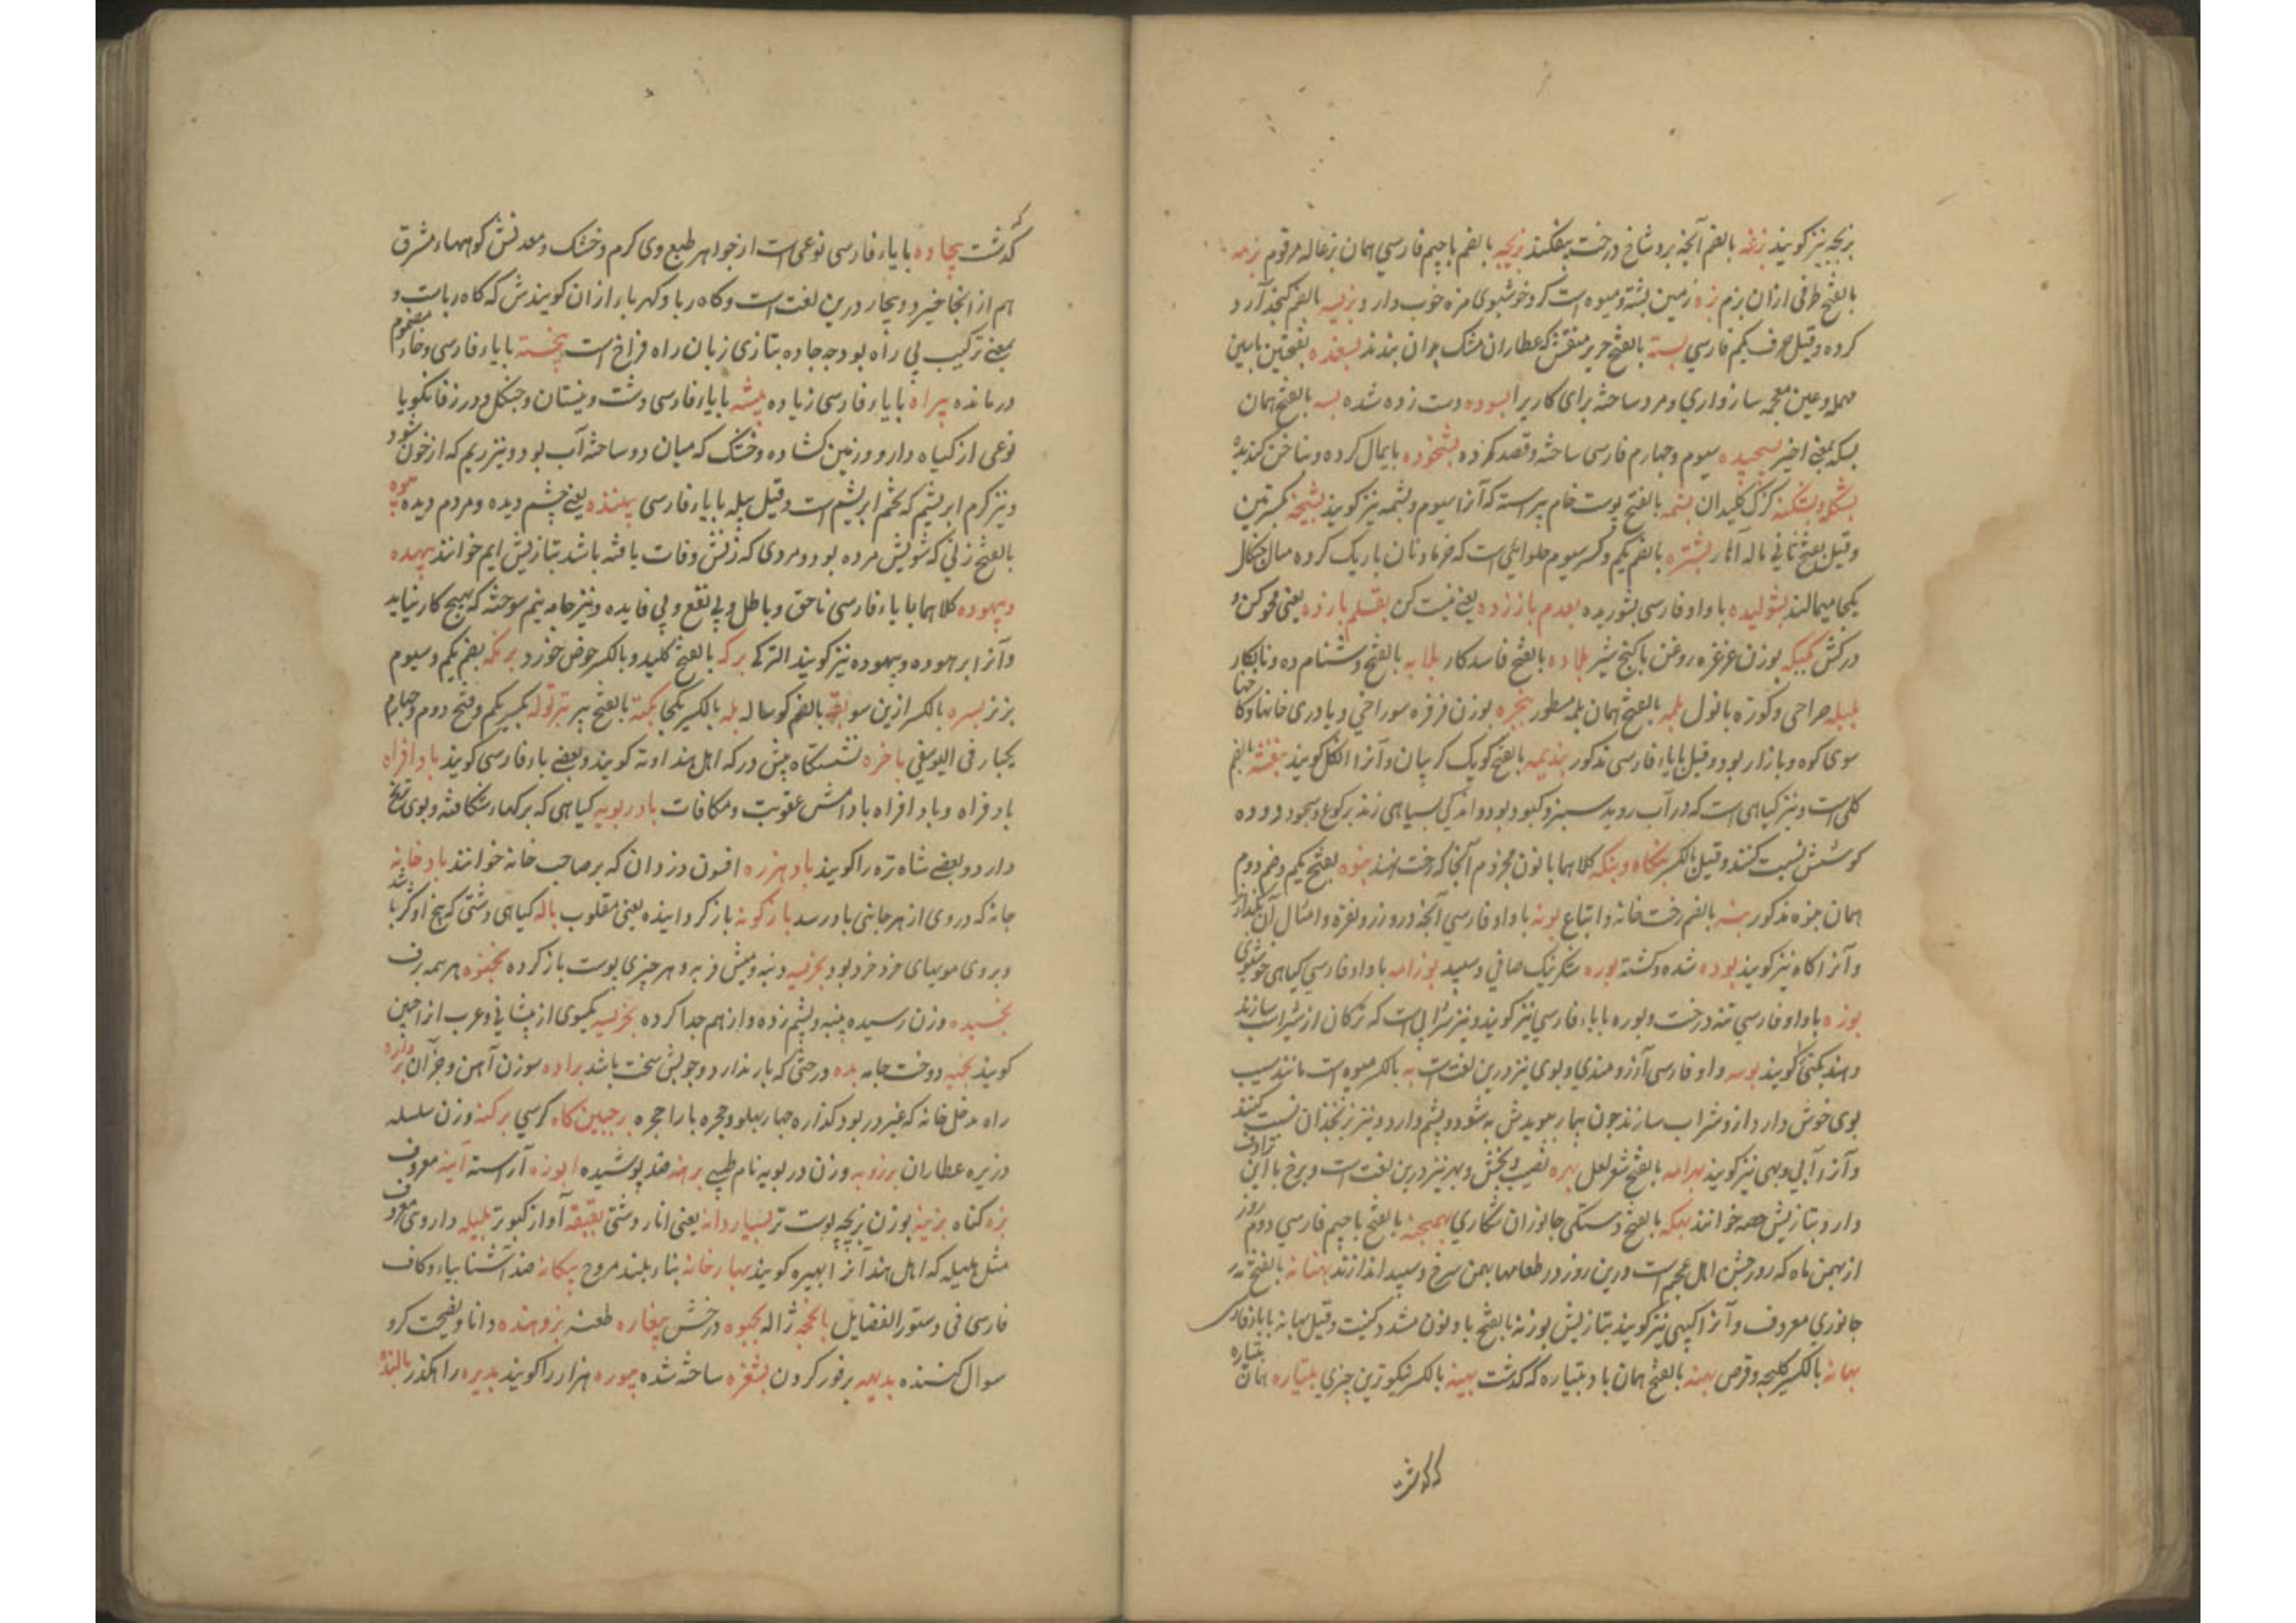 بزیچه نیز کویند بزغه بالضم آنچه برو شاخ درخت بیفکنند بزیچه بالضم باجیم فارسی همان بزغاله مرقوم بزمه
بالفتح طرفی از ان بزم بزه زمین پشته و میوه است کرد خوشبوی مزه خوب دارد بزیسه بالضم کنجد آرد
کرده و قیل حرف یکم فارسی بسته بالفتح حریر منقش که عطاران مشک بدان بندند بسغده بفتحتین باسین
مهمله و عین معجمه سازواری و مرد ساخته برای کاری را بسوده دست زده شده بسه بالفتح همان
بسکه بمعنی اخیر بسیجیده سیوم و چهارم فارسی ساخته و قصد کرده بشخوده بایمال کرده و بناخن کنده
بشکله و بشکنه کزک کلیدان بشمه بالفتح پوست خام پیراسته که آنرا سیوم و پشمه نیز کویند بشیخه کمترین
و قیل بفتح ثانی ماله آهار بشتره بالضم یکم و کسر سیوم حلوایی است که خرما و نان باریک کرده
یکجا میمالند بشولیده باواو فارسی بشوریده بعدم باززده یعنی نیست کن بقلم بارزده یعنی محو کن و
درکش بکبکه بوزن غرغره روغن باکنج شیر بلاده بالفتح فاسدکار بلایه بالفتح دشنام ده و نابکار
بلبله صراحی و کوزه بانول بلمه بالفتح همان بلمه مسطور بنجره بوزن فرفره سوراخی و یا دری خانها و کا خها
سوی کوه و بازار بود و قیل بابای فارسی مذکور بندیمه بالفتح کویک کریبان و آنرا انکله کویند بنفشه بالضم
کلی است و نیز کیاهی است که در آب روید سبز و کبود بود و اندکی بسیاهی زند برکوع و سجود
کوشش نسبت کنند و قیل بالکسر بنکاه و بنکه کلاهما بانون مجزوم آنجا که رخت نهند بنوه بفتح یکم و ضم دوم
همان بنوه مذکور بنه بالضم رخت خانه و اتباع بوته باواو فارسی آنچه درو زر و نقره و امثال آن بگدازند
و آنرا کاه نیز کویند بوده شده و کشته بوره شکر نیک صافی و سپید بوزامه باواو فارسی کیاهی خوشبوی
بوزه باواو فارسی تنه درخت و بوره بابای فارسی نیز کویند و نیز شرابی است که ترکان از شراب سازند
و هند کپنی کویند بوسه واو فارسی آرزومندی و بوی نیز درین لغت است به بالکسر میوه است مانند سیب
بوی خوش دارد ازو شراب سازند چون بیمار ببویدش به شود و پشم دارد و نیز زنخدان نسبت کنند
و آنرا آبی و بهی نیز کویند بهرامه بالفتح شعر لعل بهره نصیب و بخش و بهر نیز درین لغت است و برخ با این ترادف
دارد و بتازیش حصه خوانند بهکه بالفتح دستکی جانوران شکاری بهمنجنه بالفتح باجیم فارسی دوم روز
از بهمن ماه که روز جشن اهل عجم است درین روز در طعامها بهمن سرخ و سپید اندازند بهنانه بالفتح
جانوری معروف و آنرا کپی نیز کویند بتازیش بوزنه بالفتح با و نون مشدد کنیت و قیل بهانه بابای فارسی
بهانه بالکسر کلیچه و قرص بهنه بالفتح همان باد بتیاره که کذشت بهینه بالکسر نیکوترین چیزی بتیاره همان بتیاره
که کذشت
کذشت بیجاده بایای فارسی نوعی است از جواهر طبع وی کرم و خشک و معدنش کوههای مشرق
هم از انجا خیزد و بیجاد درین لغت است و کاه ربا و کهربا را ازان کویندش که کاه رباست و
بمعنی ترکیب بی راه بود چه جاده بتازی زبان راه فراخ است بیخسته بایای فارسی و خای مضموم
درمانده بیراه بایای فارسی زیاده بیشه بایای فارسی دشت و نیستان و جنکل و در زفانکویا
نوعی از کیاه دارو و زمین کشاده و خشک که میان دو ساحته آب بود و نیز ریم که از خون شود
و نیز کرم ابریشم که تخم ابریشم است و قیل پیله بایای فارسی بیننده یعنی چشم دیده و مردم دیده بیوه
بالفتح زنی که شویش مرده بود و مردی که زنش وفات یافته باشد بتازیش ایم خوانند بیهده
و بیهوده کلاهما بایای فارسی ناحق و باطل و بی نفع و بی فایده و نیز جامه نیم سوخته که بهیچ کار نیاید
و آنرا برهوده و بیهوده نیز کویند الترکے برکه بالفتح کلید و بالکسر حوض خورد برنکه بضم یکم و سیوم
بزنز بسره بالکسر ازین سو بقه بالضم کوساله بله بالکسر یکجا بکته بالفتح ببر بترقوله بکسر یکم و فتح دوم و چهارم
یکبار فی الیوسفی باخره نشستکاه پیش در که اهل هند اوته کویند و بعضی باء فارسی کویند بادافراه
بادفراه و بادافراه باداش عقوبت و مکافات بادربویه کیاهی که برکهاء شکافته و بوی ترنج
دارد و بعضی شاه تره را کویند بادهرزه افسون دزدان که بر صاحب خانه خوانند بادخانه
خانه که دروی از هر جانبی باد رسد بازکونه بازکردانیده یعنی مقلوب باله کیاهی دشتی که بیخ او کز باشد
و بروی مویهای خرد خرد بود بخرسه دنبه و میش فربه و هر چیزی پوست باز کرده بخنوه هرسه برف
بخسیده وزن رسیده پنبه و پشم زده و از هم جدا کرده بخرسه یکسوی از پیشانی و عرب از جبین
کویند بخیه دوخت جامه بده درختی که بار ندارد و چوبش سخت باشد براده سوزن آهن و جز آن برواره
راه مدخل خانه که غیر در بود کذاره چهار پهلو و حجره بارا حجره برجیین کاه کرسی برکنه وزن سلسله
و زیره عطاران برزویه وزن دربویه نام طبیبی برهنه ضد پوشیده ابوزه آراسته آینه معروف
بزه کناه بزینه بوزن بزیچه پوست تر بسیاردانه یعنی انار دشتی بقبقه آواز کبوتر بلیله داروی معروف
مثل هلیله که اهل هند آنرا بهیره کویند بهارخانه بناء بلند مروح بیکانه ضد آشنا بیاء و کاف
فارسی فی دستور الفضایل باغچه ژاله بجنوه درخش بیغاره طعنه بژوهنده دانا و نصیحت کر و
سوال کننده بدیهه بر فور کردن بشغزه ساخته شده بیوره هزار را کویند بدیره راهکذر بالنده